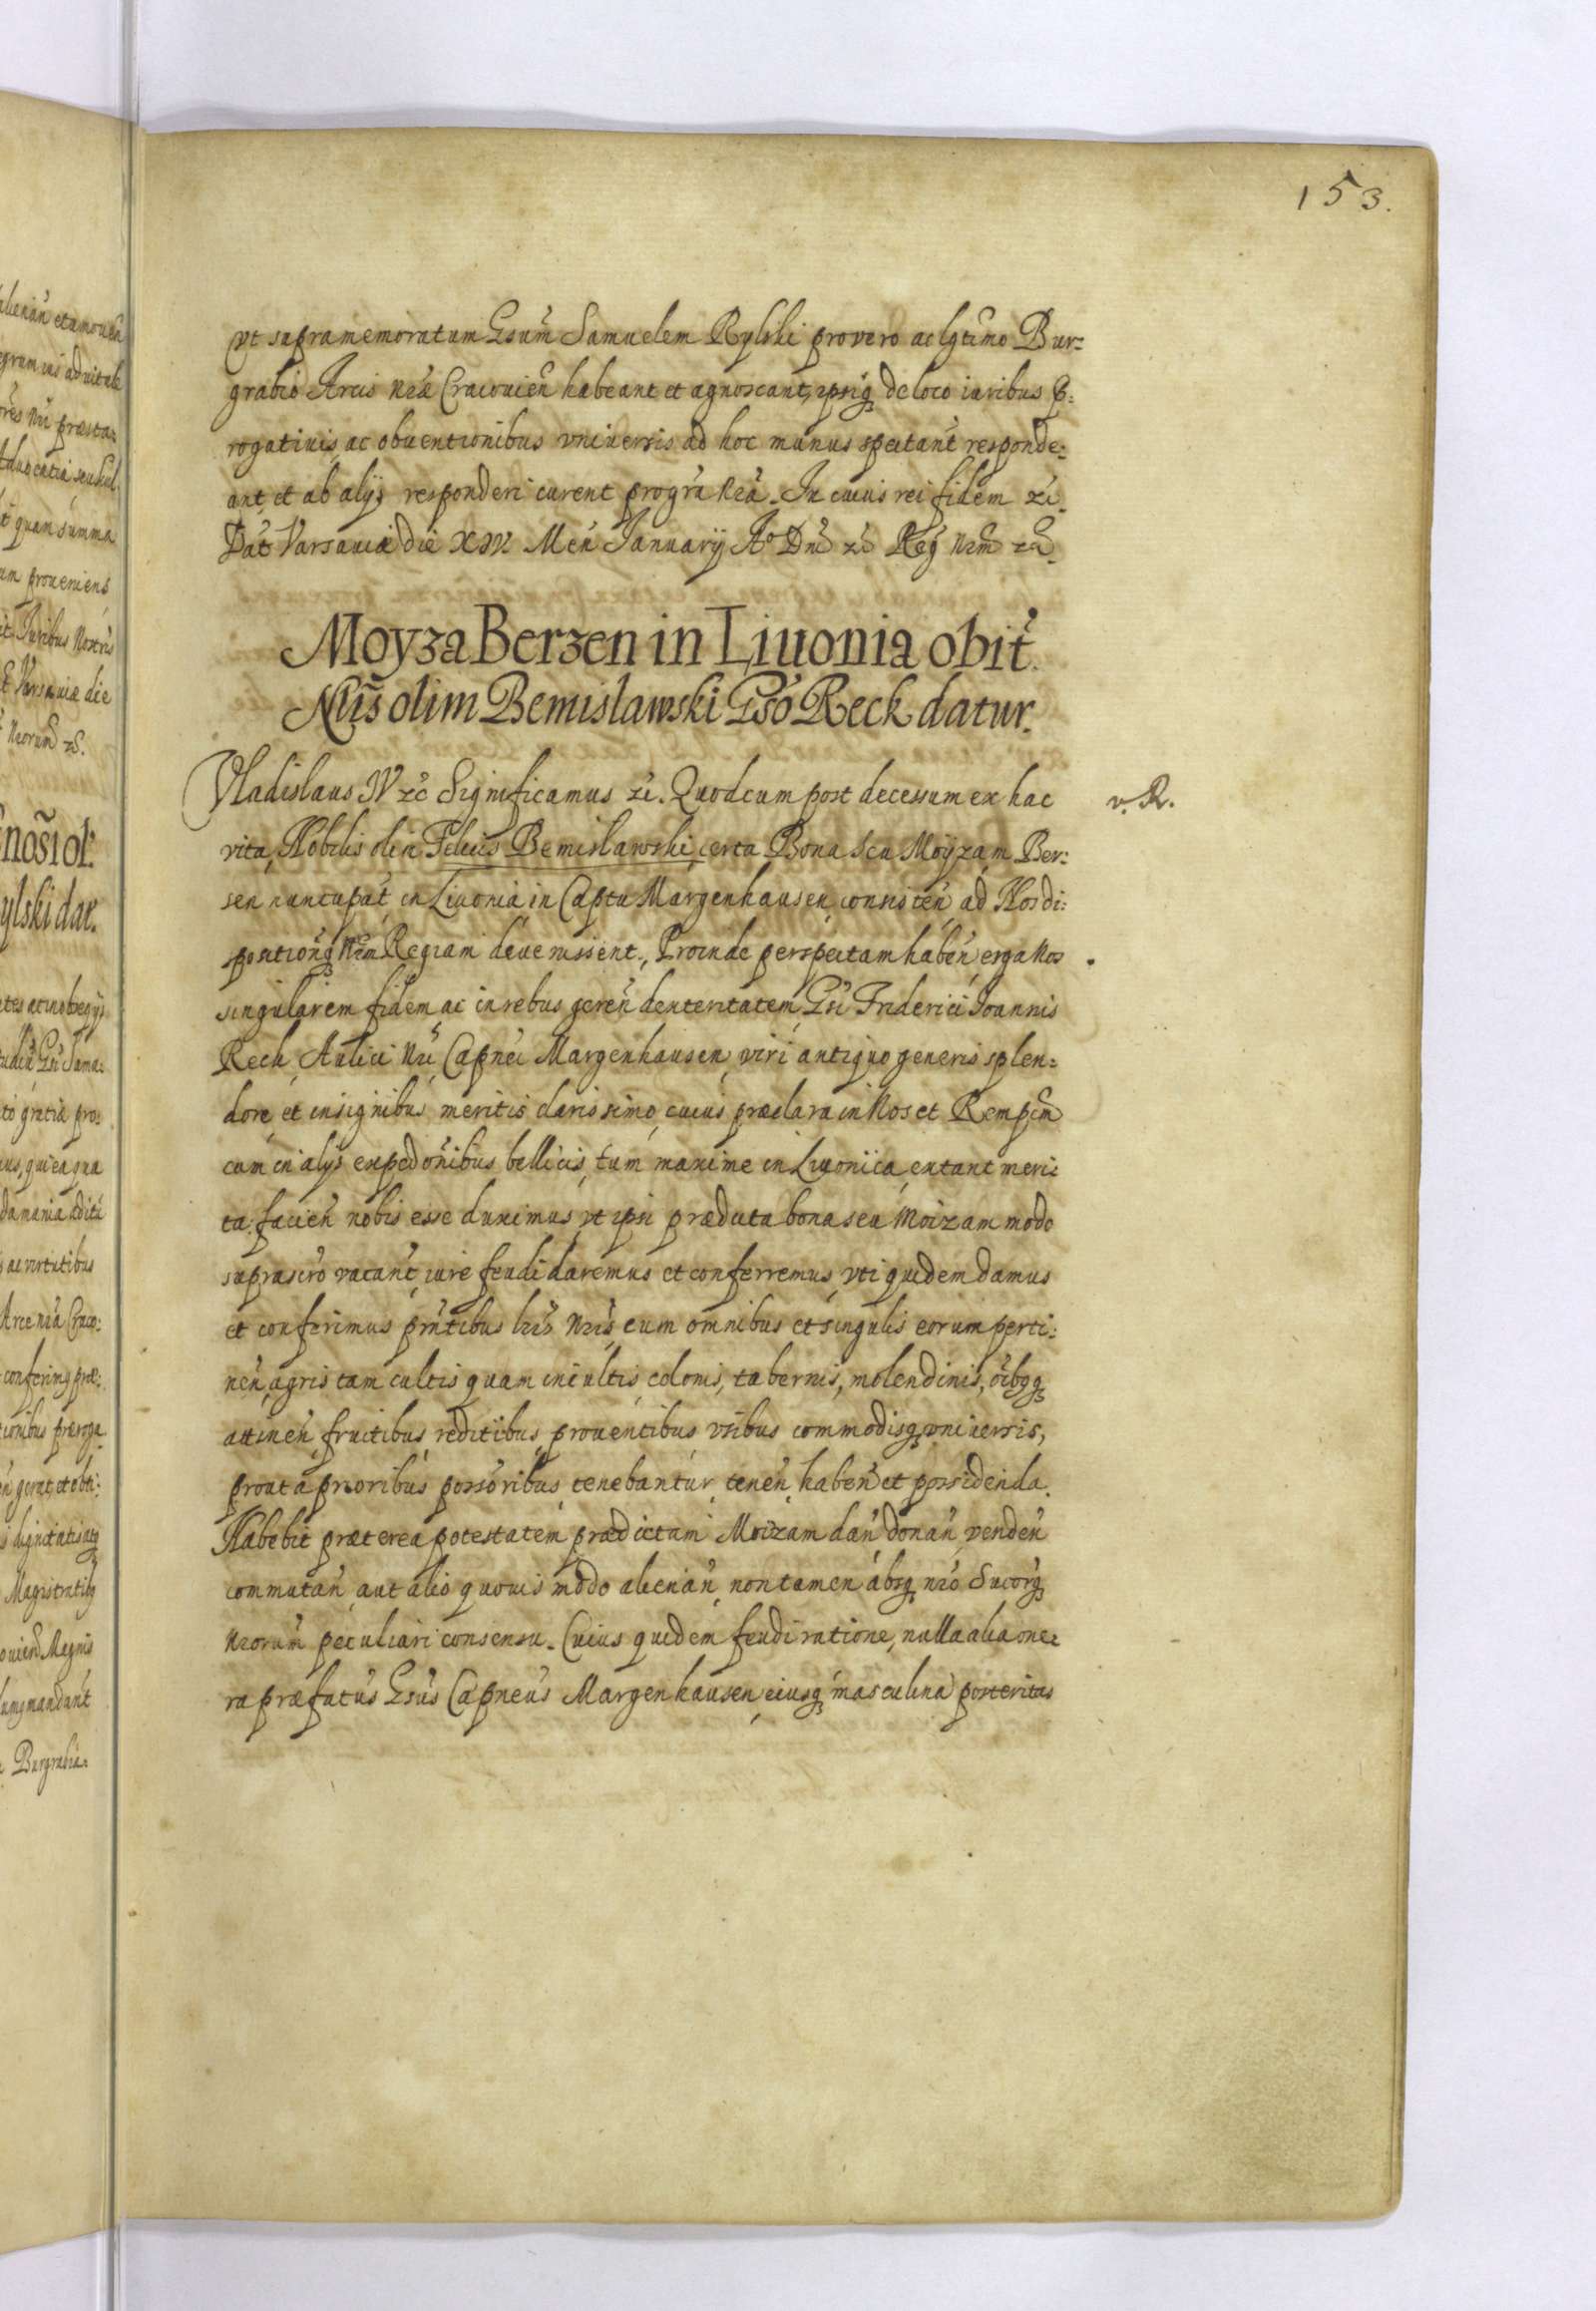 153.
vt supramemoratum Gsum̃ Samuelem Rylski pro vero ac lgtimo Bur:
grabio Arcis nr̃æ Cracouieñ habeant et agnoscant, ipsiq̃ de loco iuribus p̱:
rogatiuis, ac obuentionibus vniuersis ad hoc munus spectant̃ responde:
ant, et ab alijs responderi curent pro gr̃a nr̃a. In cuius rei fidem zc̃.
Dat̃ Varsauiæ die XIV. Men̄ Januarij Aº Dn̄i zc̃ Reg̃ nr̃m zc̃.
Moyza Berzen in Liuonia obit̃.
Nlis̃ olim Bemislawski Gso Reck datur.
Vladislaus IV zc̃ Significamus zc̃. Quod cum post decessum ex hac
vita, Nobilis olim Felicis Bemislawski, certa Bona seu Moyzam Ber:
sen nuncupat̃ in Liuonia in Captu Margenhausen consisteñ ad Nos di:
spositionq̃ nr̃m Regiam deuenissent., Proinde perspectam habeñ erga Nos
singularem fidem ac in rebus gereñ dexteritatem Gsi Friderici Joannis
Reck, Aulici Nri, Capnei Margenhausen, viri antiquo generis splen:
dore et insignibus meritis clarissimo, cuius præclara in Nos et Rempcm̃
cum in alijs expedoñibus bellicis, tum maxime in Liuonica, extant meri:
ta: facieñ nobis esse duximus, vt ipsi prædicta bona seu Moizam modo
suprascro vacant̃, iure feudi daremus et conferremus, vti quidem damus
et conferimus prñtibus lr̃is nr̃is, cum omnibus et singulis eorum perti:
neñ, agris tam cultis quam incultis, colonis, tabernis, molendinis, oibq̃q̃
attineñ, fructibus, reditibus, prouentibus vsibus commodisq̃ vniuersis,
prout a prioribus possoribus tenebantur, teneñ, habeñ et possidenda.
Habebit præterea potestatem prædictam Moizam dañ, donañ, vendeñ
commutañ, aut alio quouis modo alienañ, non tamen absq̃ nro Sucorq̃
nrorum̃ peculiari consensu. Cuius quidem feudi ratione, nulla alia one:
ra præfatus Gsus Capneus Margenhausen, eiusq̃ masculina posteritas
v. R.